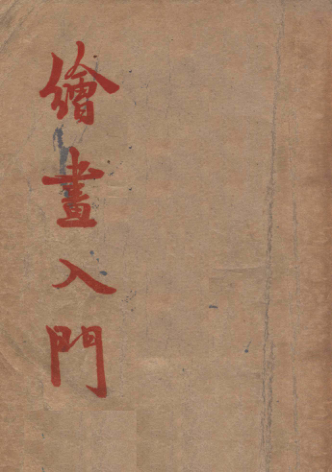 繪畫入門